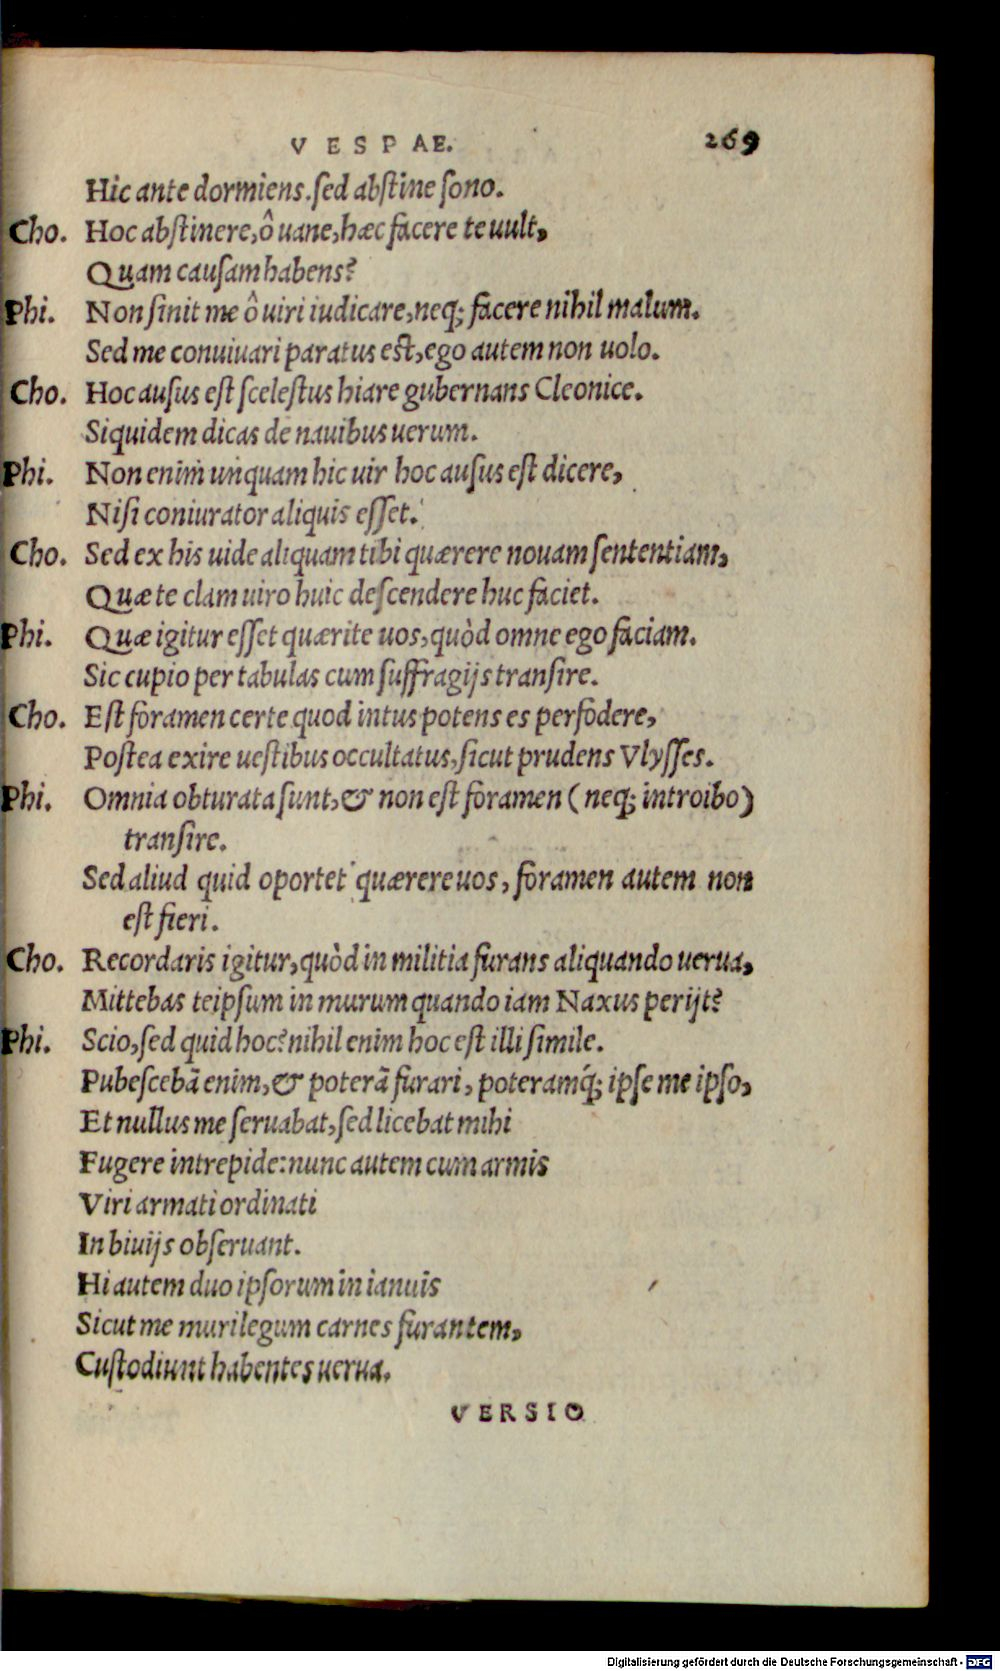 VESPAE. 269
Hic ante dormiens. sed abstine sono.
Cho. Hoc abstinere, ô uane, hæc facere te uult,
Quam causam habens?
Phi. Non sinit me ô uiri iudicare, neq; facere nihil malum.
Sed me conuiuari paratus est, ego autem non uolo.
Cho. Hoc ausus est scelestus hiare gubernans Cleonice.
Siquidem dicas de nauibus uerum.
Phi. Non enim unquam hic uir hoc ausus est dicere,
Nisi coniurator aliquis esset.
Cho. Sed ex his uide aliquam tibi quærere nouam sententiam,
Quæ te clam uiro huic descendere huc faciet.
Phi. Quæ igitur esset quærite uos, quòd omne ego faciam.
Sic cupio per tabulas cum suffragijs transire.
Cho. Est foramen certe quod intus potens es perfodere,
Postea exire uestibus occultatus, sicut prudens Vlysses.
Phi. Omnia obturata sunt, & non est foramen (neq; introibo)
transire.
Sed aliud quid oportet quærere uos, foramen autem non
est fieri.
Cho. Recordaris igitur, quòd in militia furans aliquando uerua,
Mittebas teipsum in murum quando iam Naxus perijt?
Phi. Scio, sed quid hoc? nihil enim hoc est illi simile.
Pubescebã enim, & poterã furari, poteramq́; ipse me ipso,
Et nullus me seruabat, sed licebat mihi
Fugere intrepide: nunc autem cum armis
Viri armati ordinati
In biuijs obseruant.
Hi autem duo ipsorum in ianuis
Sicut me murilegum carnes furantem,
Custodiunt habentes uerua.
VERSIO
Digitalisierung gefördert durch die Deutsche Forschungsgemeinschaft - DFG